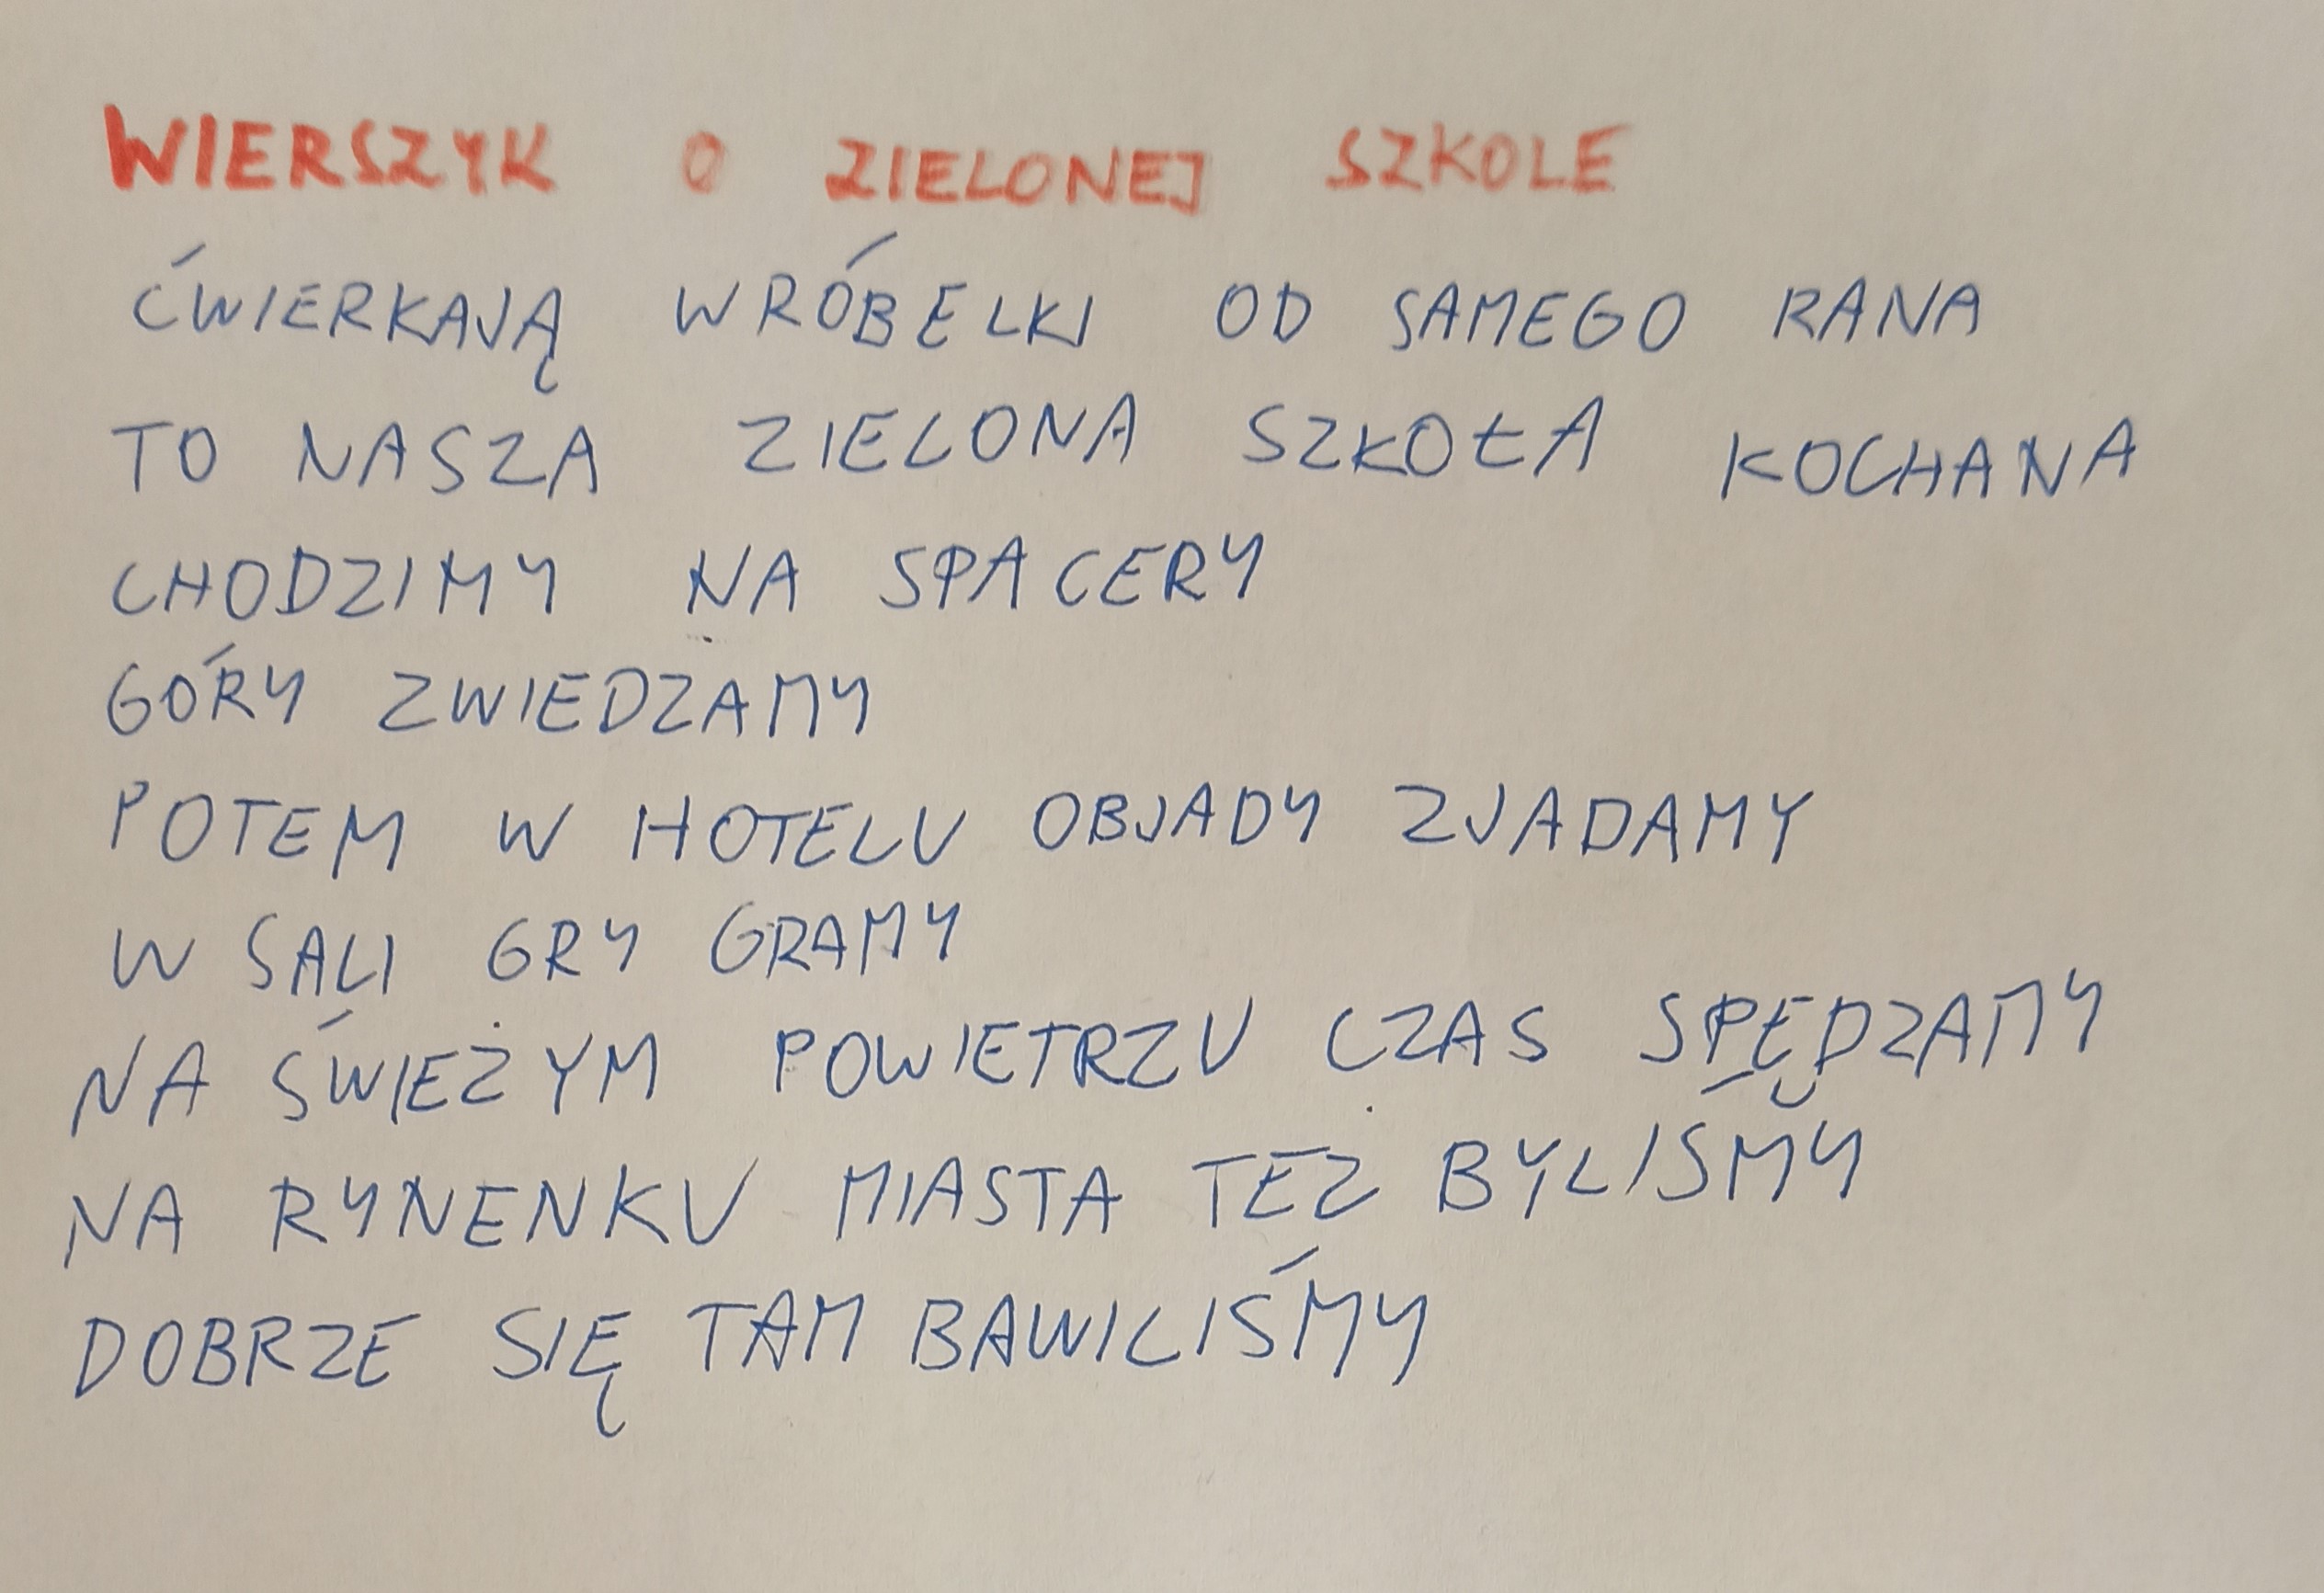 WIERSZYK O ZIELONEJ SZKOLE
ĆWIERKAJĄ WRÓBELKI OD SAMEGO RANA
TO NASZA ZIELONA SZKOŁA KOCHANA
CHODZIMY NA SPACERY
GÓRY ZWIEDZAMY
POTEM W HOTELU OBJADY ZJADAMY
W SALI GRY GRAMY
NA ŚWIEŻYM POWIETRZU CZAS SPĘDZAMY
NA RYNENKU MIASTA TEŻ BYLIŚMY
DOBRZE SIĘ TAM BAWILIŚMY